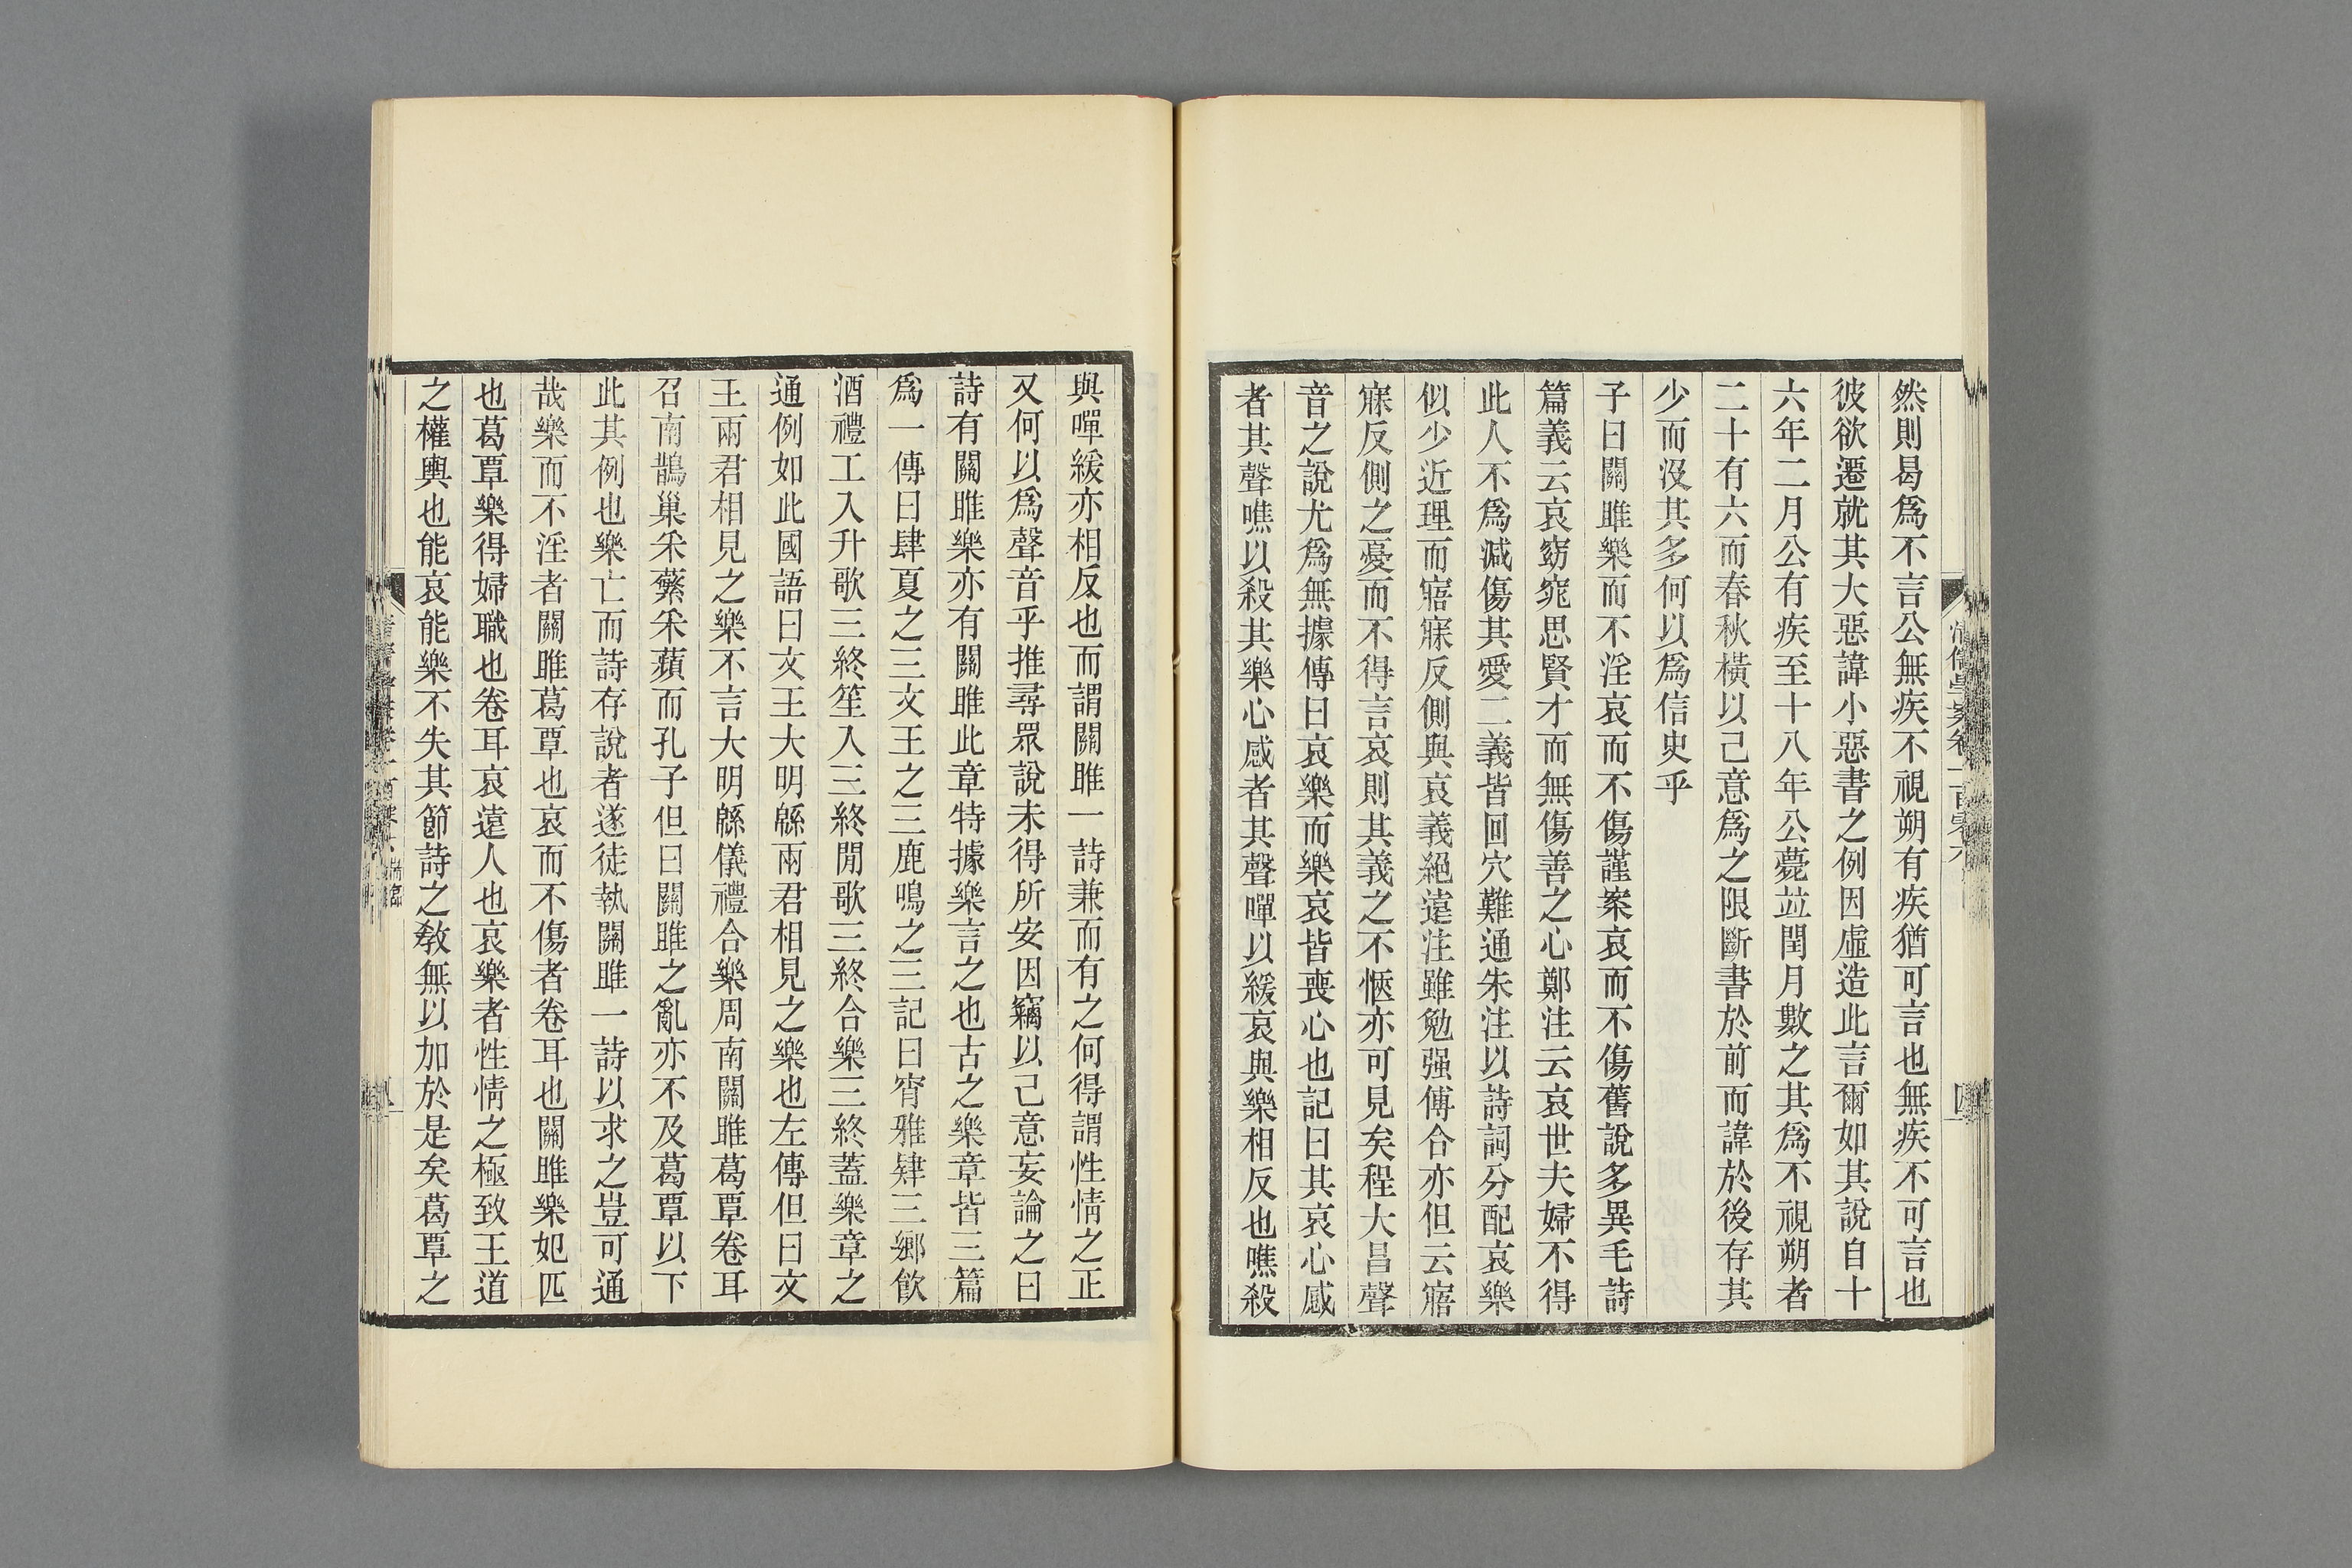 然則曷爲不言公無疾不視朔有疾猶可言也無疾不可言也
彼欲遷就其大惡諱小惡書之例因虛造此言爾如其說自十
六年二月公有疾至十八年公薨竝閏月數之其爲不視朔者
二十有六而春秋橫以己意爲之限斷書於前而諱於後存其
少而沒其多何以爲信史乎
子曰關雎樂而不淫哀而不傷謹案哀而不傷舊說多異毛詩
篇義云哀窈窕思賢才而無傷善之心鄭注云哀世夫婦不得
此人不爲減傷其愛二義皆回穴難通朱注以詩詞分配哀樂
似少近理而寤寐反側與哀義絕遠注雖勉强傅合亦但云寤
寐反側之憂而不得言哀則其義之不愜亦可見矣程大昌聲
音之說尤爲無據傳曰哀樂而樂哀皆喪心也記曰其哀心感
者其聲噍以殺其樂心感者其聲嘽以緩哀與樂相反也噍殺
與嘽緩亦相反也而謂關雎一詩兼而有之何得謂性情之正
又何以爲聲音乎推尋眾說未得所安因竊以己意妄論之曰
詩有關雎樂亦有關雎此章特據樂言之也古之樂章皆三篇
爲一傳曰肆夏之三文王之三鹿鳴之三記曰宵雅肄三鄉飲
酒禮工入升歌三終笙入三終閒歌三終合樂三終蓋樂章之
通例如此國語曰文王大明緜兩君相見之樂也左傳但曰文
王兩君相見之樂不言大明緜儀禮合樂周南關雎葛覃卷耳
召南鵲巢采蘩采蘋而孔子但曰關雎之亂亦不及葛覃以下
此其例也樂亡而詩存說者遂徒執關雎一詩以求之豈可通
哉樂而不淫者關雎葛覃也哀而不傷者卷耳也關雎樂妃匹
也葛覃樂得婦職也卷耳哀遠人也哀樂者性情之極致王道
之權輿也能哀能樂不失其節詩之敎無以加於是矣葛覃之